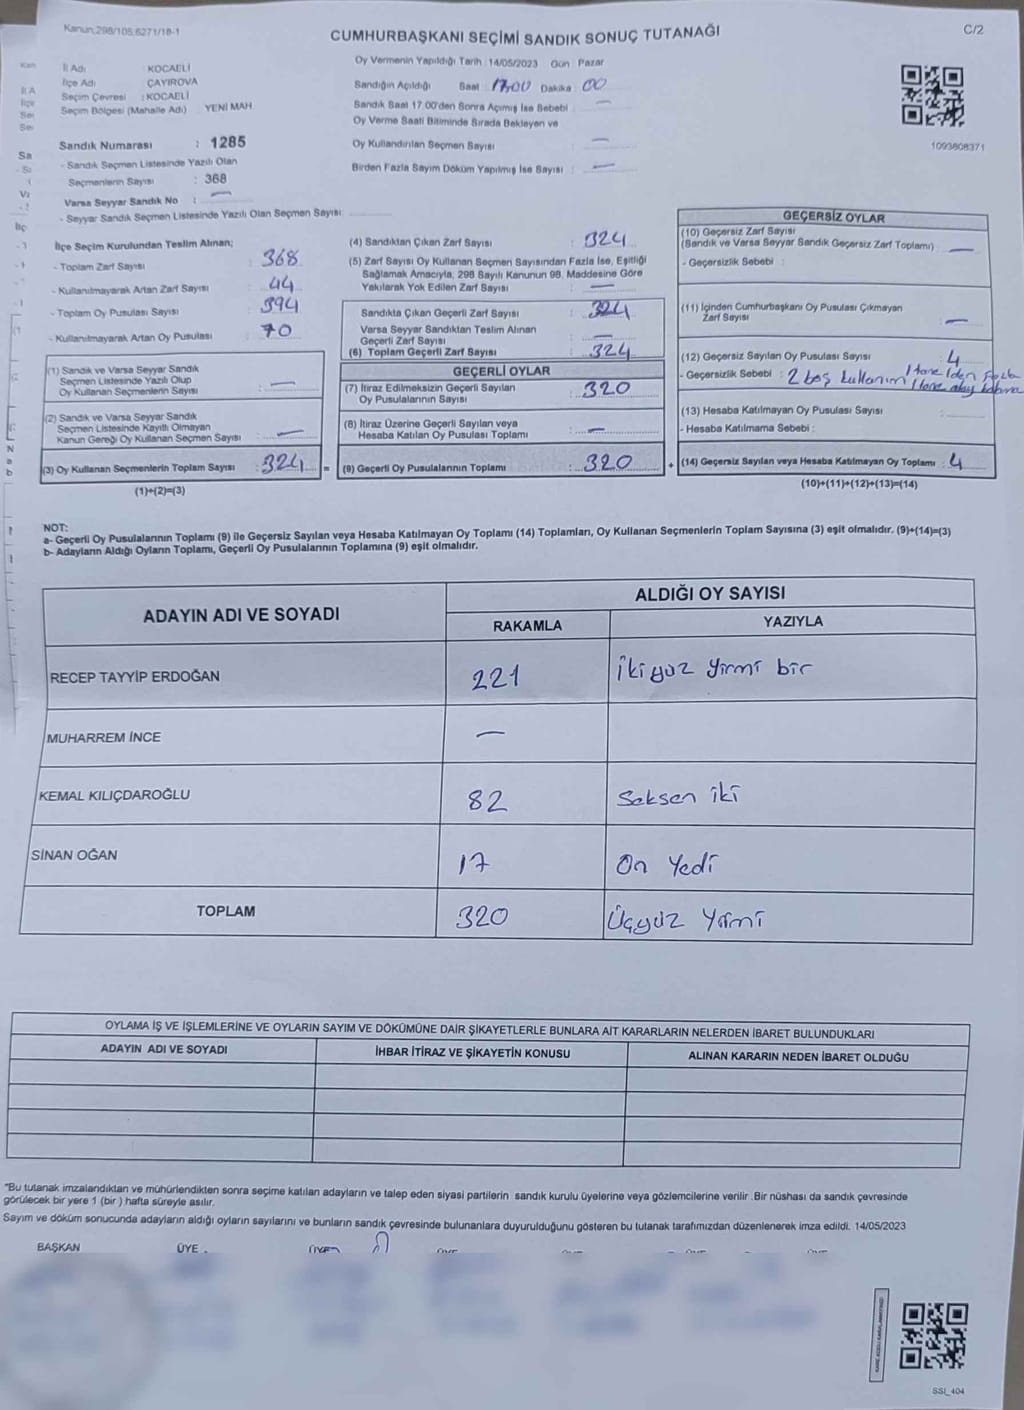 Kanun;298/105,6271/18-1
CUMHURBAŞKANI SEÇİMİ SANDIK SONUÇ TUTANAĞI
C/2
İl Adı : KOCAELİ
İlçe Adı : ÇAYIROVA
Seçim Çevresi : KOCAELİ
Seçim Bölgesi (Mahalle Adı) : YENİ MAH
Sandık Numarası : 1285
- Sandık Seçmen Listesinde Yazılı Olan
Seçmenlerin Sayısı : 368
Varsa Seyyar Sandık No : —
- Seyyar Sandık Seçmen Listesinde Yazılı Olan Seçmen Sayısı:
Oy Vermenin Yapıldığı Tarih : 14/05/2023 Gün : Pazar
Sandığın Açıldığı Saat 17:00 Dakika : 00
Sandık Saat 17:00'den Sonra Açımış İse Sebebi : —
Oy Verme Saati Bitiminde Sırada Bekleyen ve
Oy Kullandırılan Seçmen Sayısı : —
Birden Fazla Sayım Döküm Yapılmış İse Sayısı : —
1093808371
İlçe Seçim Kurulundan Teslim Alınan;
- Toplam Zarf Sayısı : 368
- Kullanılmayarak Artan Zarf Sayısı : 44
- Toplam Oy Pusulası Sayısı : 394
- Kullanılmayarak Artan Oy Pusulası : 70
(1) Sandık ve Varsa Seyyar Sandık
Seçmen Listesinde Yazılı Olup
Oy Kullanan Seçmenlerin Sayısı : —
(2) Sandık ve Varsa Seyyar Sandık
Seçmen Listesinde Kayıtlı Olmayan
Kanun Gereği Oy Kullanan Seçmen Sayısı : —
(3) Oy Kullanan Seçmenlerin Toplam Sayısı : 324 =
(1)+(2)=(3)
(4) Sandıktan Çıkan Zarf Sayısı : 324
(5) Zarf Sayısı Oy Kullanan Seçmen Sayısından Fazla İse, Eşitliği
Sağlamak Amacıyla, 298 Sayılı Kanunun 98. Maddesine Göre
Yakılarak Yok Edilen Zarf Sayısı : —
Sandıkta Çıkan Geçerli Zarf Sayısı : 324
Varsa Seyyar Sandıktan Teslim Alınan
Geçerli Zarf Sayısı : —
(6) Toplam Geçerli Zarf Sayısı : 324
GEÇERLİ OYLAR
(7) İtiraz Edilmeksizin Geçerli Sayılan
Oy Pusulalarının Sayısı : 320
(8) İtiraz Üzerine Geçerli Sayılan veya
Hesaba Katılan Oy Pusulası Toplamı : —
(9) Geçerli Oy Pusulalarının Toplamı : 320 +
GEÇERSİZ OYLAR
(10) Geçersiz Zarf Sayısı
(Sandık ve Varsa Seyyar Sandık Geçersiz Zarf Toplamı) : —
- Geçersizlik Sebebi :
(11) İçinden Cumhurbaşkanı Oy Pusulası Çıkmayan
Zarf Sayısı : —
(12) Geçersiz Sayılan Oy Pusulası Sayısı : 4
- Geçersizlik Sebebi : 2 boş kullanım 1 tane 1'den fazla
1 tane
(13) Hesaba Katılmayan Oy Pusulası Sayısı :
- Hesaba Katılmama Sebebi :
(14) Geçersiz Sayılan veya Hesaba Katılmayan Oy Toplamı : 4
(10)+(11)+(12)+(13)=(14)
NOT:
a- Geçerli Oy Pusulalarının Toplamı (9) ile Geçersiz Sayılan veya Hesaba Katılmayan Oy Toplamı (14) Toplamları, Oy Kullanan Seçmenlerin Toplam Sayısına (3) eşit olmalıdır. (9)+(14)=(3)
b- Adayların Aldığı Oyların Toplamı, Geçerli Oy Pusulalarının Toplamına (9) eşit olmalıdır.
ADAYIN ADI VE SOYADI
ALDIĞI OY SAYISI
RAKAMLA YAZIYLA
RECEP TAYYİP ERDOĞAN 221 İkiyüz yirmi bir
MUHARREM İNCE —
KEMAL KILIÇDAROĞLU 82 Seksen iki
SİNAN OĞAN 17 On Yedi
TOPLAM 320 Üçyüz Yirmi
OYLAMA İŞ VE İŞLEMLERİNE VE OYLARIN SAYIM VE DÖKÜMÜNE DAİR ŞİKAYETLERLE BUNLARA AİT KARARLARIN NELERDEN İBARET BULUNDUKLARI
ADAYIN ADI VE SOYADI İHBAR İTİRAZ VE ŞİKAYETİN KONUSU ALINAN KARARIN NEDEN İBARET OLDUĞU
"Bu tutanak imzalandıktan ve mühürlendikten sonra seçime katılan adayların ve talep eden siyasi partilerin sandık kurulu üyelerine veya gözlemcilerine verilir .Bir nüshası da sandık çevresinde
görülecek bir yere 1 (bir ) hafta süreyle asılır.
Sayım ve döküm sonucunda adayların aldığı oyların sayılarını ve bunların sandık çevresinde bulunanlara duyurulduğunu gösteren bu tutanak tarafımızdan düzenlenerek imza edildi. 14/05/2023
BAŞKAN ÜYE ÜYE
SSI_404